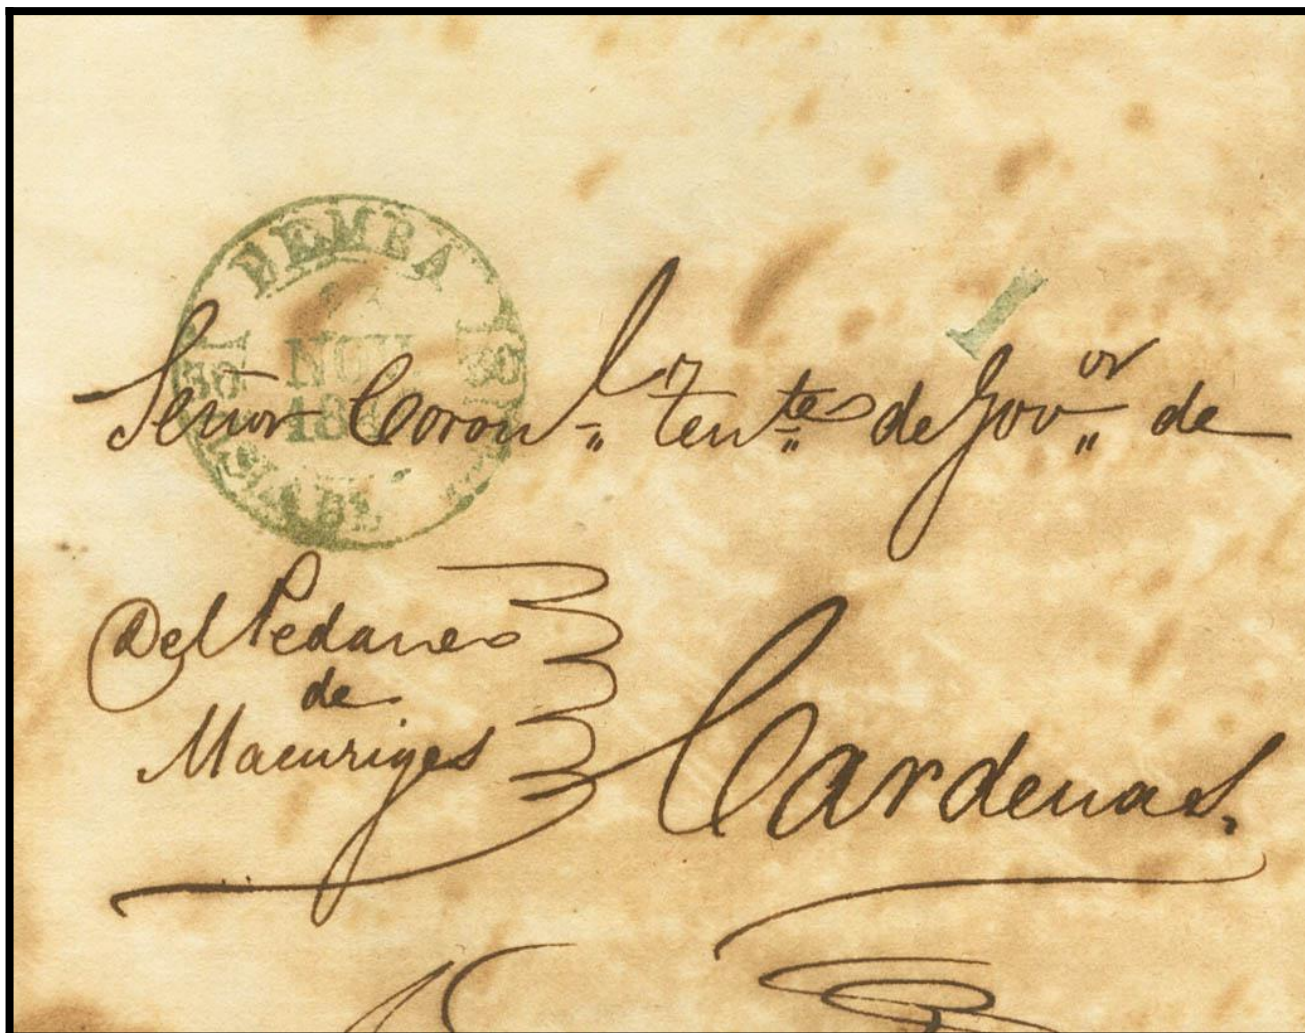 BEMBA
NOV
Señor Coronl. tente de Govor. de
Del Pedaneo
de
Macuriges
Cardenas.